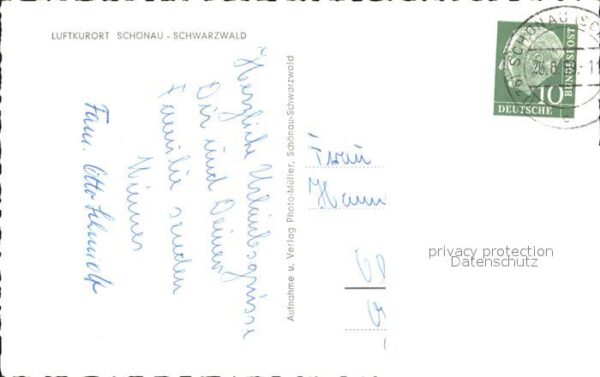 LUFTKURORT SCHÖNAU - SCHWARZWALD
Herzliche Urlaubsgrüsse
Dir und Deiner
Familie senden
Fam. Otto Schmidt
Aufnahme u. Verlag Photo-Müller, Schönau-Schwarzwald
SCHÖNAU (SC
10
DEUTSCHE
BUNDESPOST
Frau
Hann
privacy protection
Datenschutz